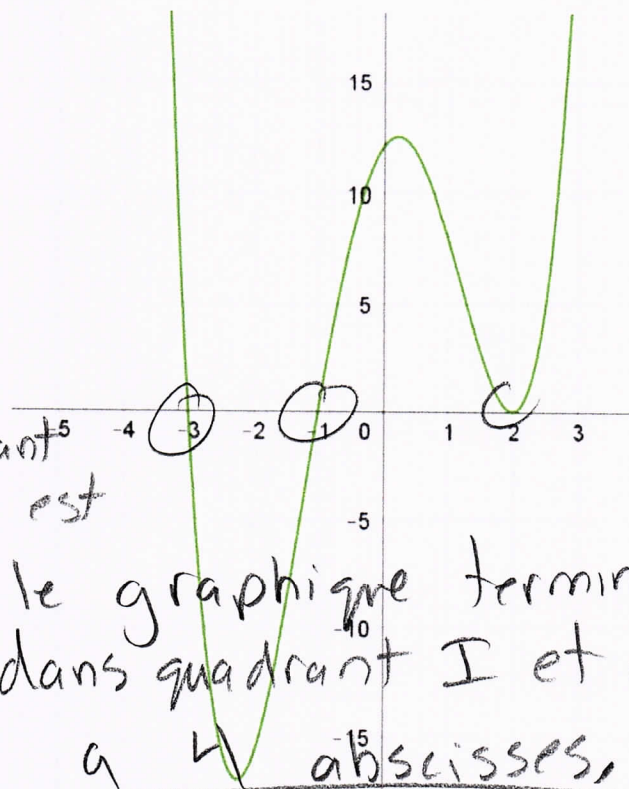 15
10
5
-5 -4 -3 -2 -1 0 1 2 3
ant
-5
est
le graphique termin
-10
dans quadrant I et
-15
a 4 abscisses,